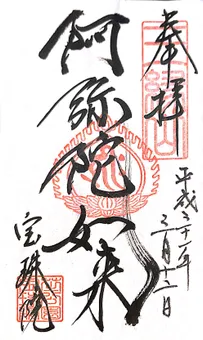 奉拝
平成三十一年
三月十二日
阿弥陀如来
宝珠院